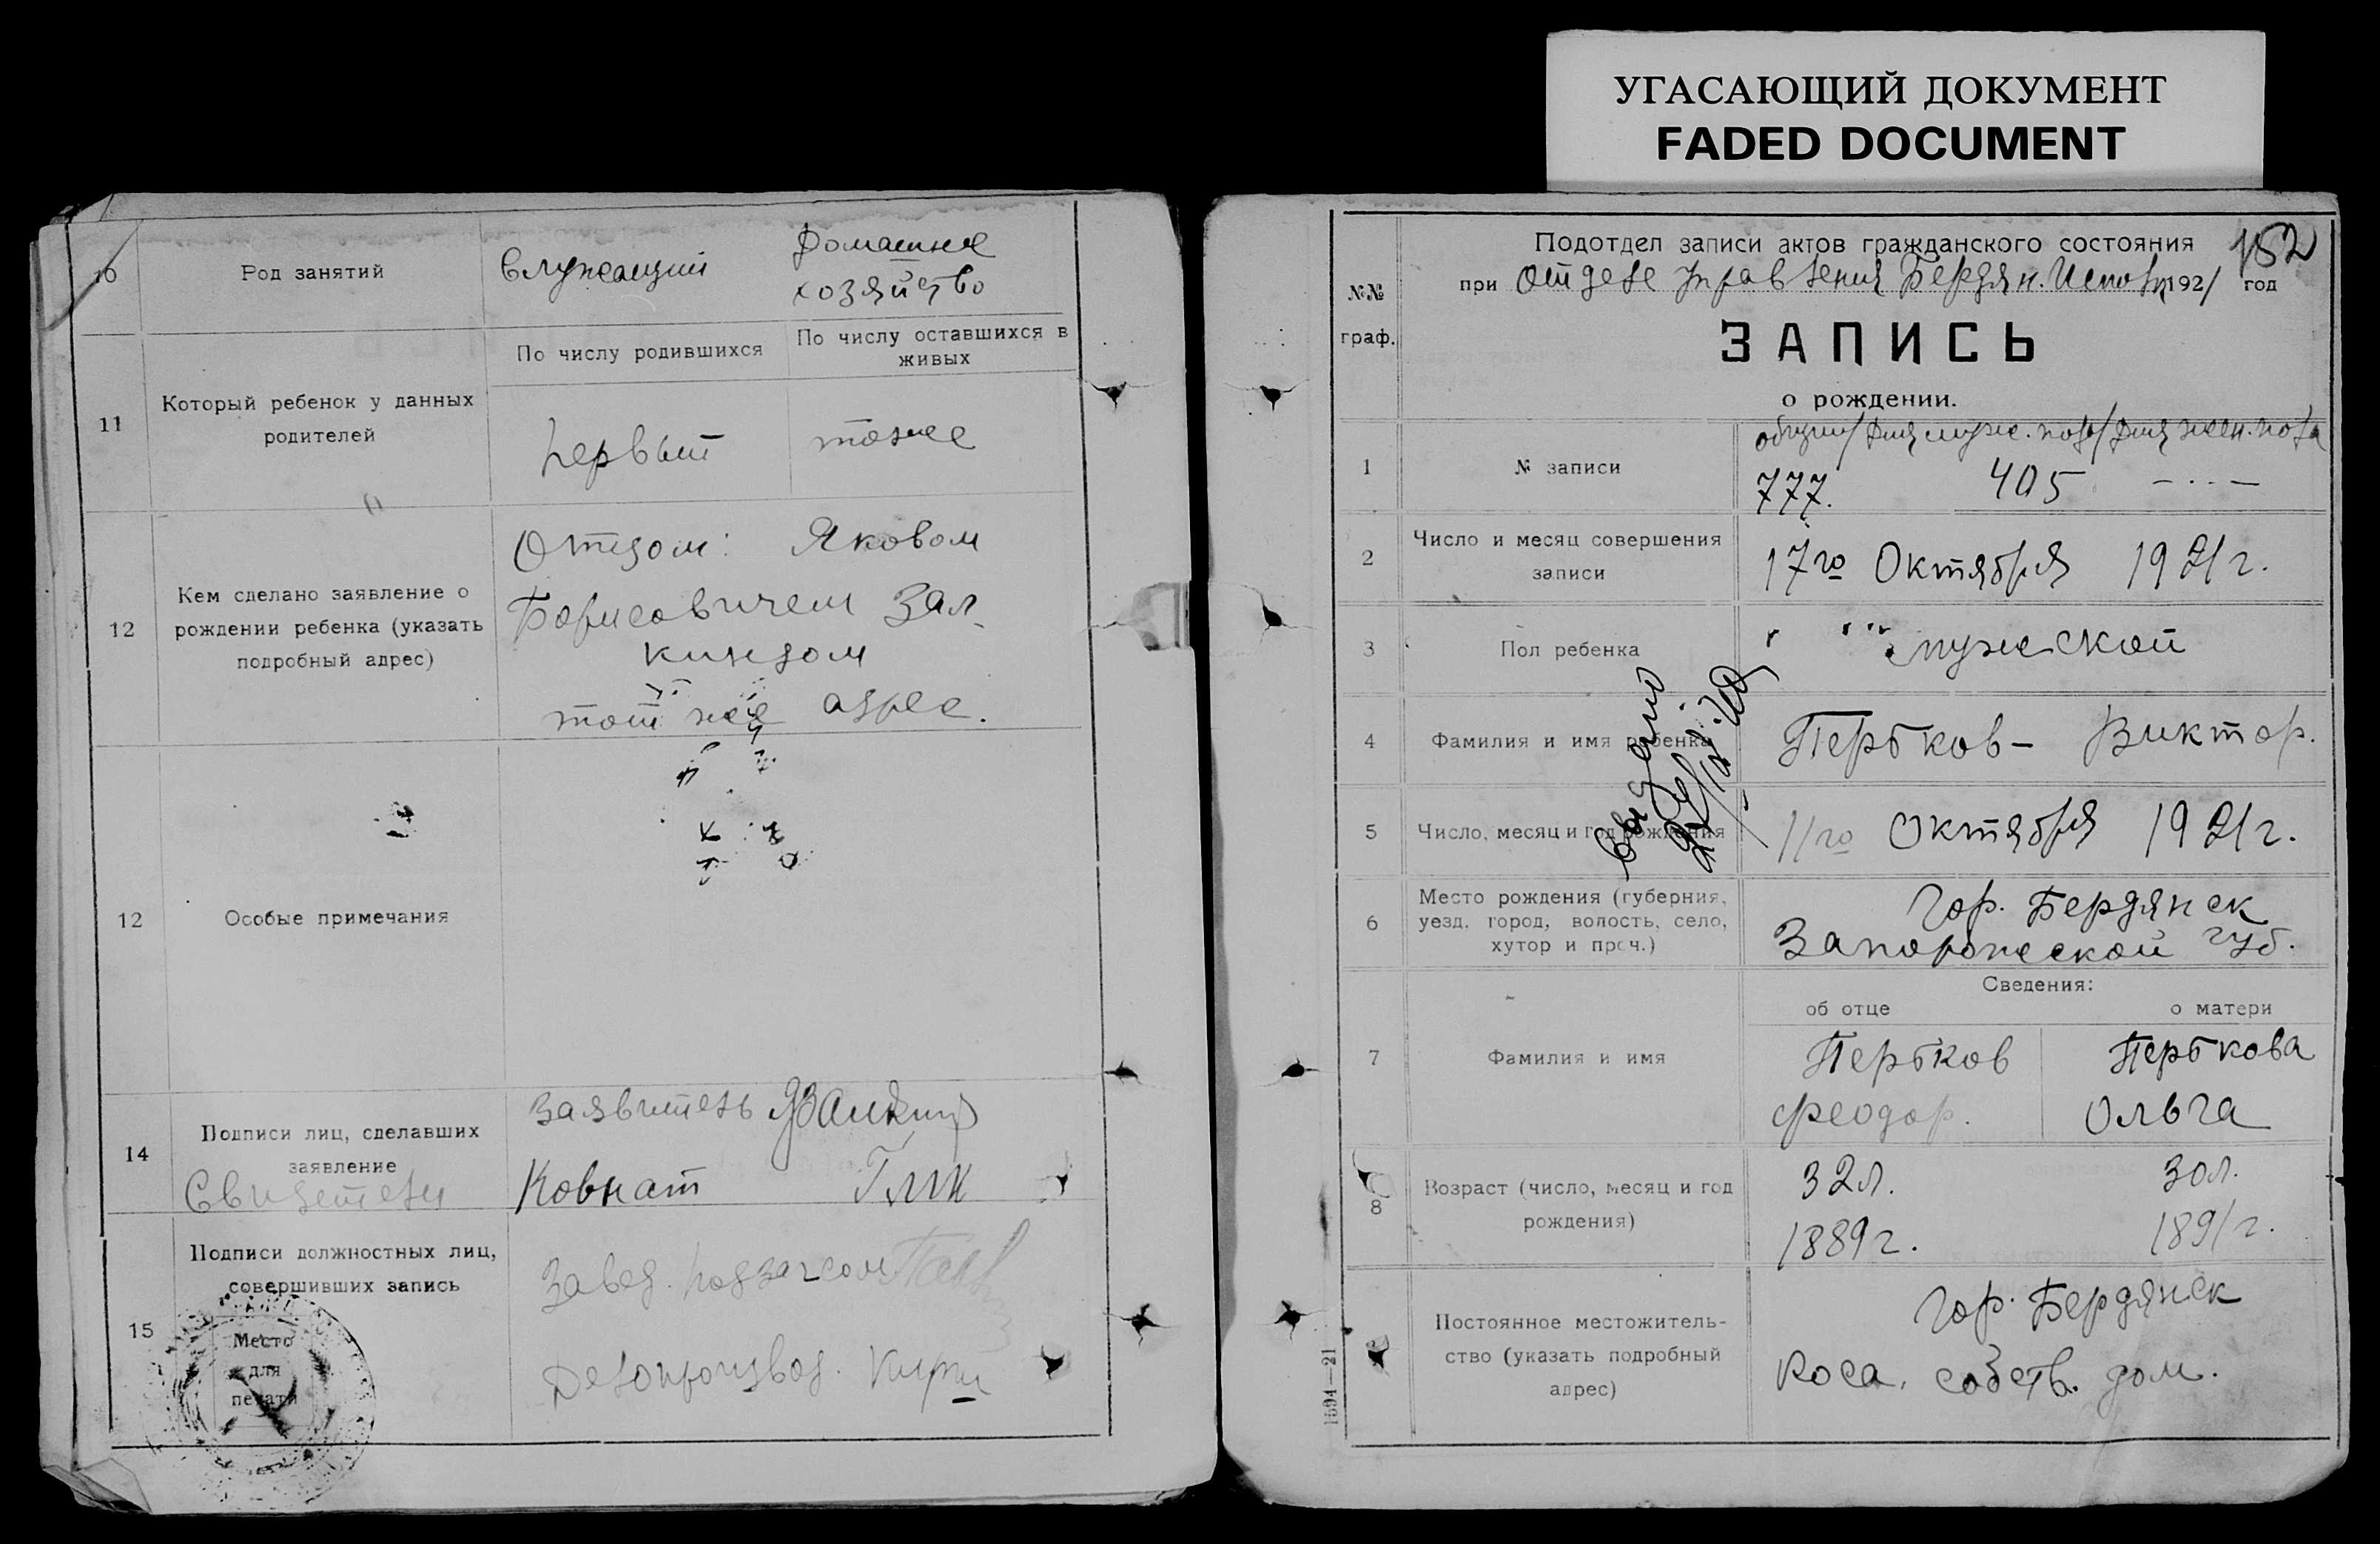 УГАСАЮЩИЙ ДОКУМЕНТ
FADED DOCUMENT
10
Род занятий
Служащий
Домашнее
хозяйство
11
Который ребенок у данных
родителей
По числу родившихся
По числу оставшихся в
живых
первый
тоже
12
Кем сделано заявление о
рождении ребенка (указать
подробный адрес)
Отцом: Яковом
Борисовичем Зал-
киндом
тот же адрес.
12
Особые примечания
14
Подписи лиц, сделавших
заявление
Свидетели
Заявитель
Ковнат Глик
15
Подписи должностных лиц,
совершивших запись
Место
для
печати
Завед. подзагсом
Делопроизвод.
152
№№
граф.
Подотдел записи актов гражданского состояния
при Отделе Управления Бердян. Исполк 1921 год
ЗАПИСЬ
о рождении.
1
№ записи
общий/для муже. пола/для жен. пола
777. 405 — · · —
2
Число и месяц совершения
записи
17го Октября 1921 г.
3
Пол ребенка
мужской
4
Фамилия и имя ребенка
Пербков - Виктор.
5
Число, месяц и год рождения
11го Октября 1921 г.
Выдано
6
Место рождения (губерния,
уезд, город, волость, село,
хутор и проч.)
Гор. Бердянск
Запорожеской губ.
Сведения:
об отце
о матери
7
Фамилия и имя
Пербков
Феодор.
Пербкова
Ольга
8
Возраст (число, месяц и год
рождения)
32 л.
1889 г.
30 л.
1891 г.
Постоянное местожитель-
ство (указать подробный
адрес)
Гор. Бердянск
Коса. собств. дом.
1594—21